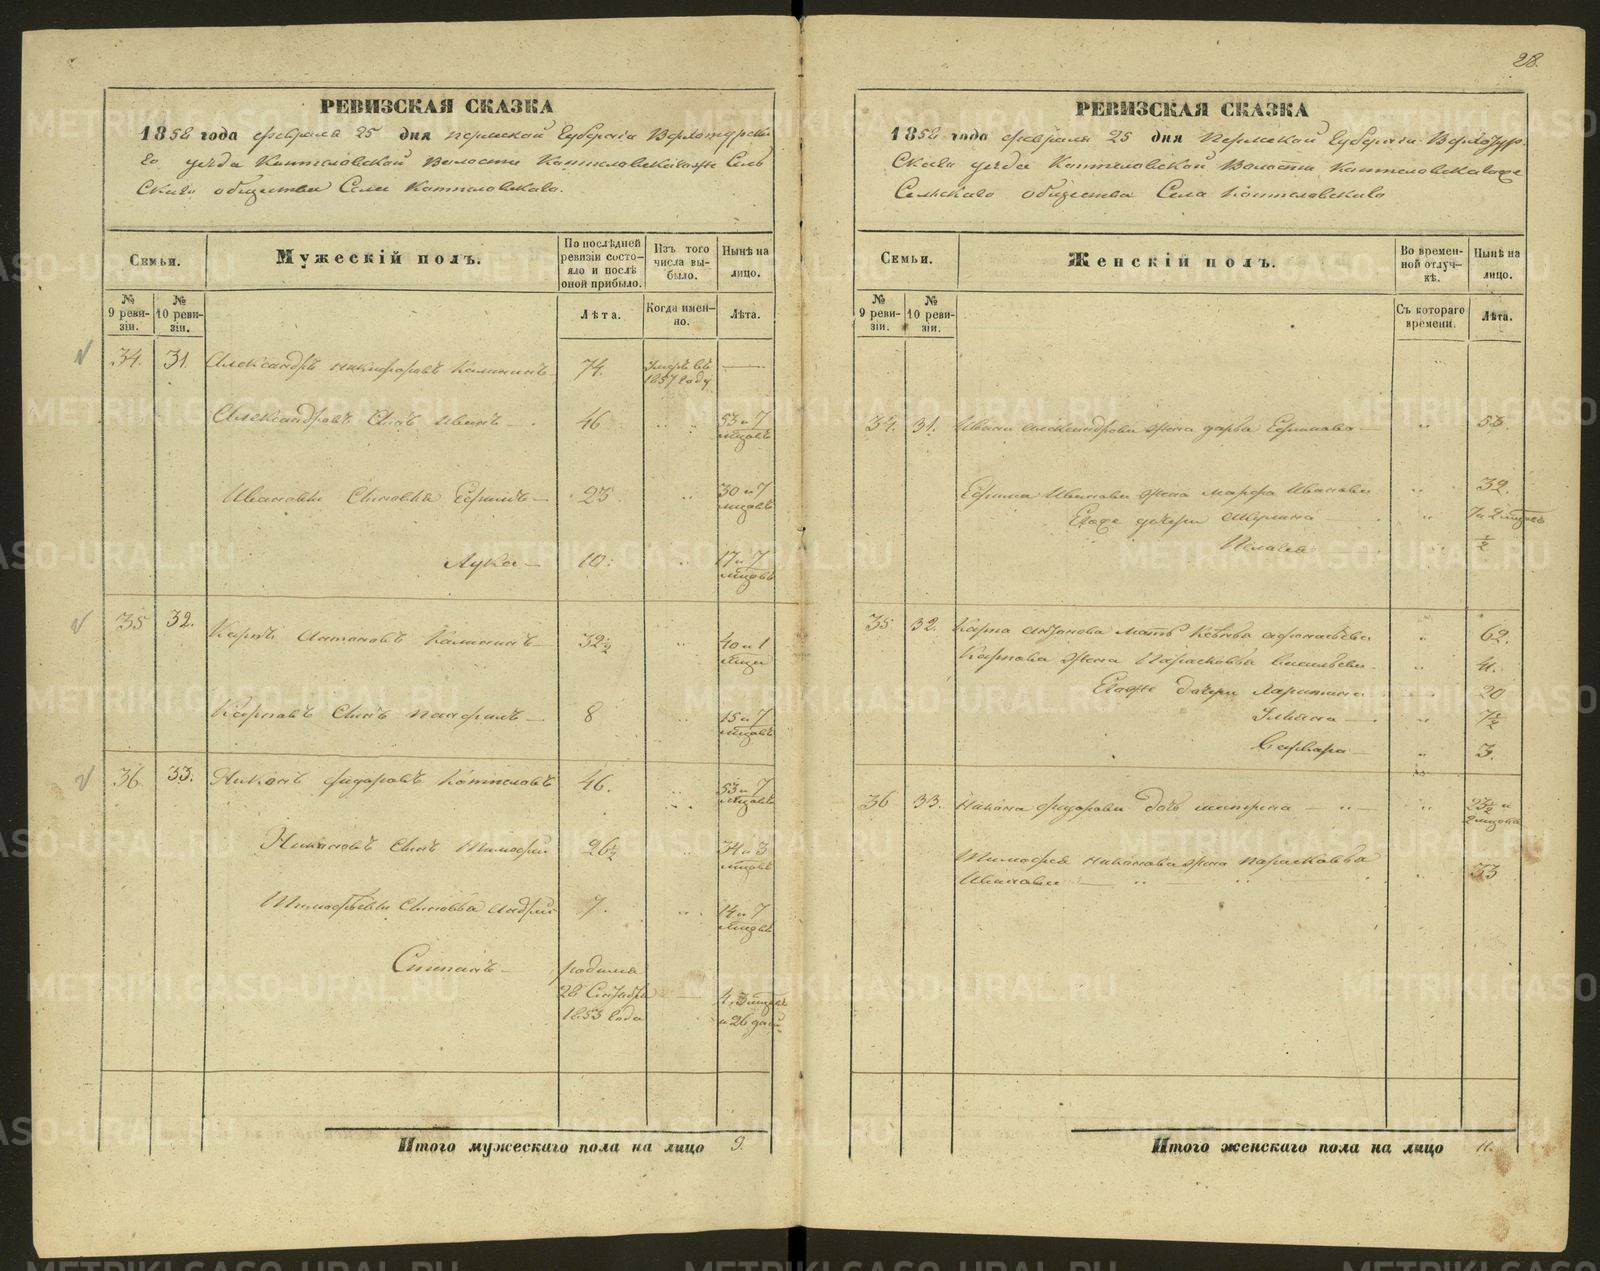 РЕВИЗСКАЯ СКАЗКА
1858 года февраля 25 дня Пермской Губернiи Верхотурска
го уезда Коптеловской Волости Коптеловскагоже Сель
Скаго общества Села Коптеловскаго.
Семьи.
Мужескiй полъ.
По послѣдней ревизiи состояло и послѣ оной прибыло.
Изъ того числа выбыло.
Нынѣ на лицо.
№ 9 ревизiи.
№ 10 ревизiи.
Лѣта.
Когда именно.
Лѣта.
34. 31. Александръ Никифоровъ Калининъ 74. Умеръ въ 1857 году
Александровъ Сынъ Иванъ 46 53 и 7 мѣсяцовъ
Ивановы Сыновья Ефимъ 23 30 и 7 мѣсяцовъ
Лука 10 17 и 7 мѣсяцовъ
35 32. Карпъ Антоновъ Калининъ 32½ 40 и 1 мѣсяц
Карповъ Сынъ Панфилъ 8 15 и 7 мѣсяцовъ
36 33. Никонъ Фидоровъ Коптеловъ 46. 53 и 7 мѣсяцовъ
Никоновъ Сынъ Тимофей 26½ 34 и 3 мѣсяцовъ
Тимофѣевы Сыновья Андрей 7. 14 и 7 мѣсяцовъ
Степанъ родился 28 1853 года 4. 3 мѣсяцовъ и 26 дней
Итого мужескаго пола на лицо 9.
28.
РЕВИЗСКАЯ СКАЗКА
1858 года февраля 25 дня Пермской Губернiи Верхотур.
Скаго уезда Коптеловской Волости Коптеловскагоже
Сельскаго общества Села Коптеловскаго
Семьи.
Женскiй полъ.
Во временной отлучкѣ.
Нынѣ на лицо.
№ 9 ревизiи.
№ 10 ревизiи.
Съ котораго времени.
Лѣта.
34. 31. Ивана Александрова жена Дарья Ефимова 53.
Ефима Иванова жена Марфа Иванова 32.
Егоже дочери 7 и 2 мѣсяцовъ
Пелагея ½
35 32. Карпа Антонова мать 62.
Карпова жена Парасковья Васильева 41.
Егоже дочери Харитина 20
Ульяна 7½
Варвара 3.
36 33. Никона Фидорова дочь 23½ и 2 мѣсяца
Тимофея Никонова жена Парасковья
Иванова 33
Итого женскаго пола на лицо 11.
METRIKI.GASO-URAL.RU